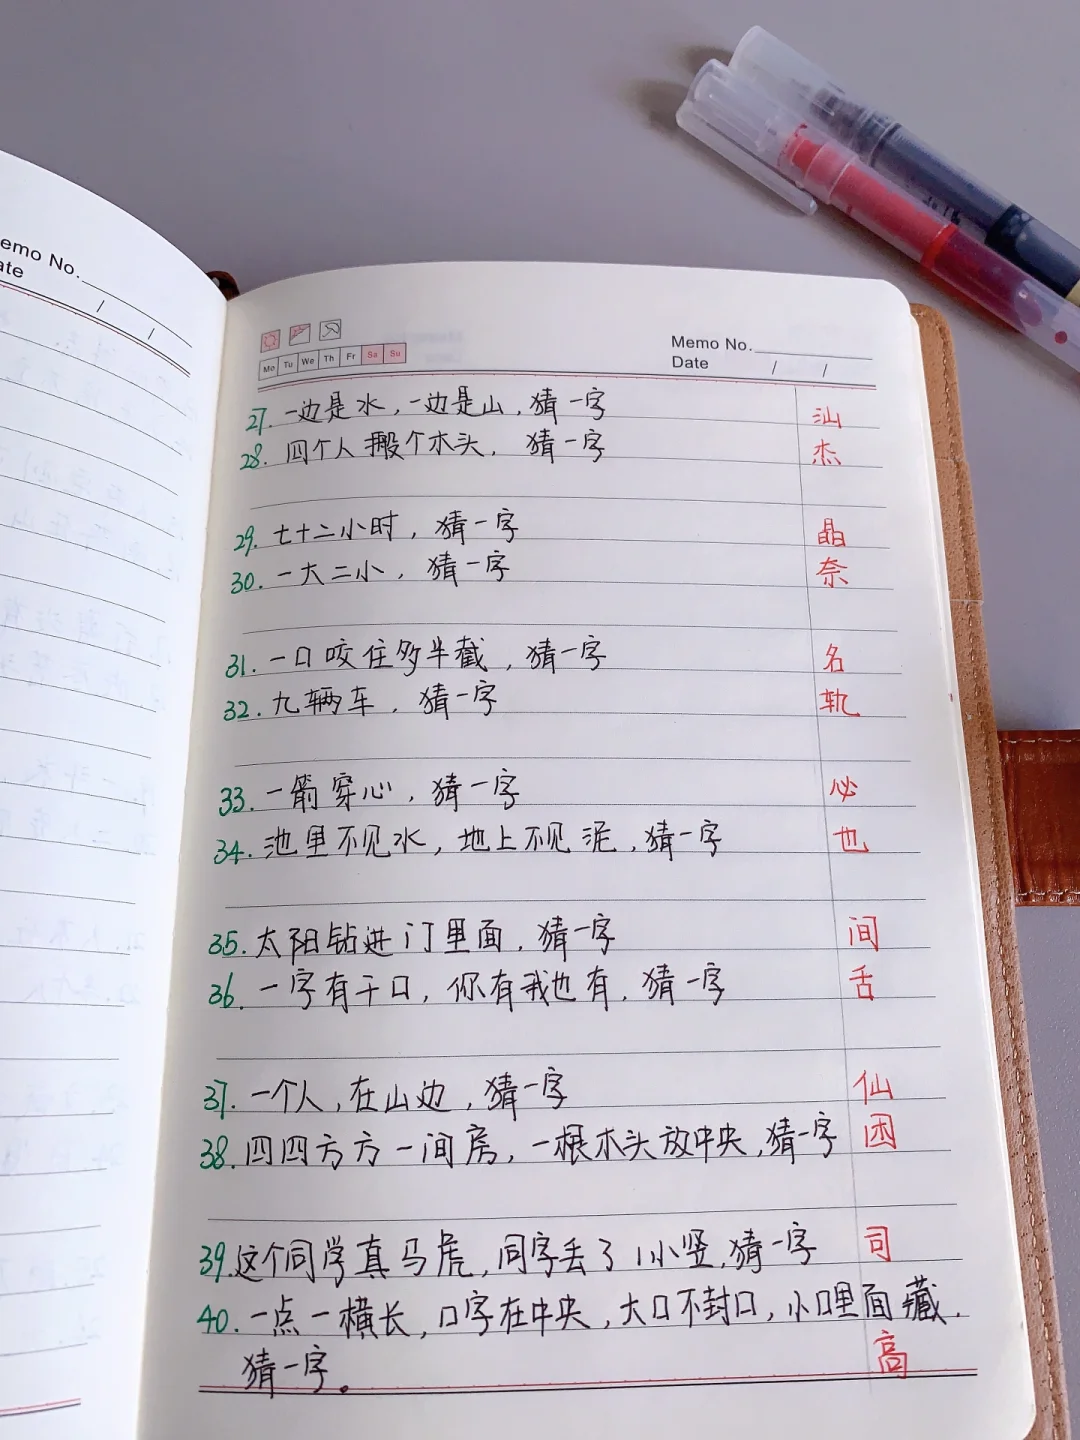 emo No.
ate / /
Mo Tu We Th Fr Sa Su
Memo No.
Date / /
27. 一边是水，一边是山，猜一字 汕
28. 四个人搬个木头，猜一字 杰
29. 七十二小时，猜一字 晶
30. 一大二小，猜一字 奈
31. 一口咬住多半截，猜一字 名
32. 九辆车，猜一字 轨
33. 一箭穿心，猜一字 必
34. 池里不见水，地上不见泥，猜一字 也
35. 太阳钻进门里面，猜一字 间
36. 一字有千口，你有我也有，猜一字 舌
37. 一个人，在山边，猜一字 仙
38. 四四方方一间房，一根木头放中央，猜一字 困
39. 这个同学真马虎，同字丢了1小竖，猜一字 司
40. 一点一横长，口字在中央，大口不封口，小口里面藏，
猜一字。 高